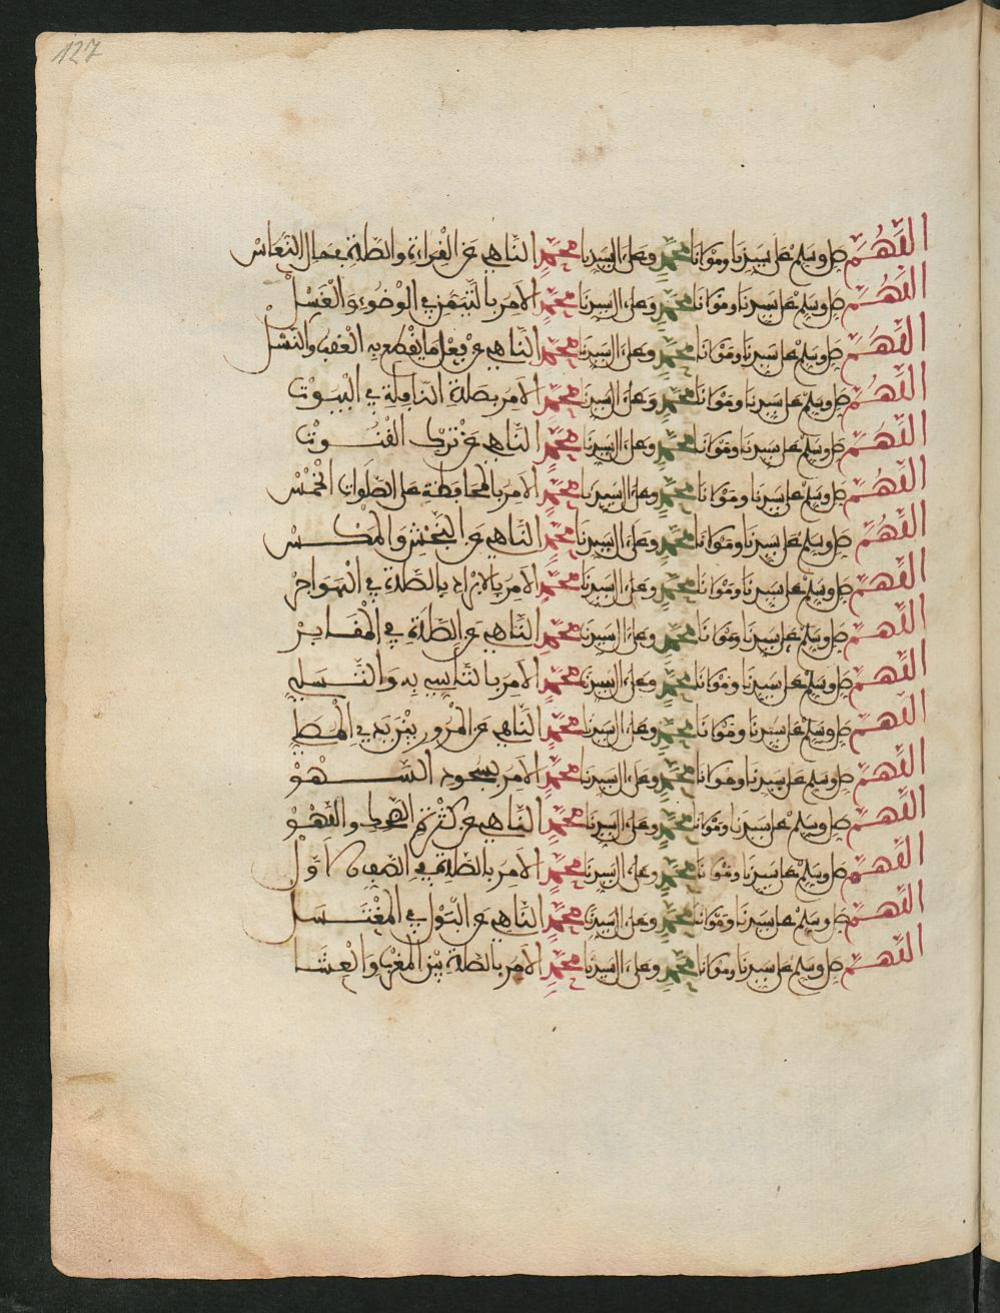 127
اللهم صل وسلم على سيدنا ومولانا محمد وعلى ءال سيدنا محمد الناهي عن القراءة والصلاة في حال النعاس
اللهم صل وسلم على سيدنا ومولانا محمد وعلى ءال سيدنا محمد الامر بالتيمن في الوضوء والغسل
اللهم صل وسلم على سيدنا ومولانا محمد وعلى ءال سيدنا محمد الناهي عن فعل ما يقطع به العقب والنسل
اللهم صل وسلم على سيدنا ومولانا محمد وعلى ءال سيدنا محمد الامر بصلاة النافلة في البيوت
اللهم صل وسلم على سيدنا ومولانا محمد وعلى ءال سيدنا محمد الناهي عن ترك القنوت
اللهم صل وسلم على سيدنا ومولانا محمد وعلى ءال سيدنا محمد الامر بالمحافظة على الصلوات الخمس
اللهم صل وسلم على سيدنا ومولانا محمد وعلى ءال سيدنا محمد الناهي عن والمكس
اللهم صل وسلم على سيدنا ومولانا محمد وعلى ءال سيدنا محمد الامر بالابراد بالصلاة في الهواجر
اللهم صل وسلم على سيدنا ومولانا محمد وعلى ءال سيدنا محمد الناهي عن الصلاة في المقابر
اللهم صل وسلم على سيدنا ومولانا محمد وعلى ءال سيدنا محمد الامر بالتأسي به والتسلي
اللهم صل وسلم على سيدنا ومولانا محمد وعلى ءال سيدنا محمد الناهي عن المرور بين يدي المصلي
اللهم صل وسلم على سيدنا ومولانا محمد وعلى ءال سيدنا محمد الامر بسجود السهو
اللهم صل وسلم على سيدنا ومولانا محمد وعلى ءال سيدنا محمد الناهي عن كثرة الضحك واللهو
اللهم صل وسلم على سيدنا ومولانا محمد وعلى ءال سيدنا محمد الامر بالصلاة في الصف الاول
اللهم صل وسلم على سيدنا ومولانا محمد وعلى ءال سيدنا محمد الناهي عن البول في المغتسل
اللهم صل وسلم على سيدنا ومولانا محمد وعلى ءال سيدنا محمد الامر بالصلاة بين المغرب والعشا